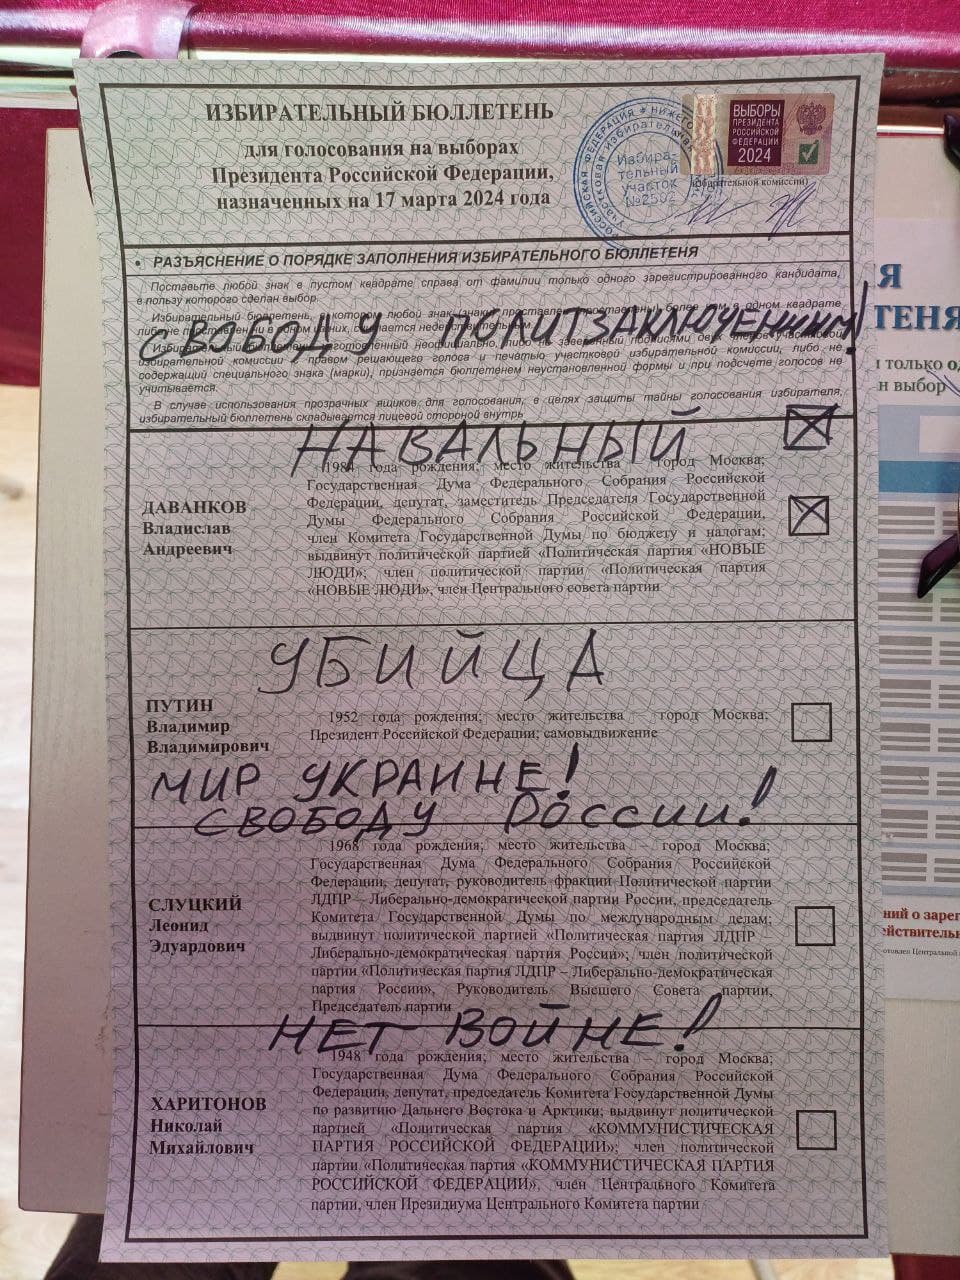 ИЗБИРАТЕЛЬНЫЙ БЮЛЛЕТЕНЬ
для голосования на выборах
Президента Российской Федерации,
назначенных на 17 марта 2024 года
РОССИЙСКАЯ ФЕДЕРАЦИЯ
Избира-
тельный
участок
№2502
ВЫБОРЫ
ПРЕЗИДЕНТА
РОССИЙСКОЙ
ФЕДЕРАЦИИ
2024
(избирательной комиссии)
• РАЗЪЯСНЕНИЕ О ПОРЯДКЕ ЗАПОЛНЕНИЯ ИЗБИРАТЕЛЬНОГО БЮЛЛЕТЕНЯ
Поставьте любой знак в пустом квадрате справа от фамилии только одного зарегистрированного кандидата,
в пользу которого сделан выбор.
Избирательный бюллетень, в котором любой знак (знаки) проставлен (проставлены) более чем в одном квадрате
либо не проставлен ни в одном из них, считается недействительным.
СВОБОДУ ПОЛИТЗАКЛЮЧЕННЫМ!
Избирательный бюллетень, изготовленный неофициально, либо не заверенный подписями двух членов участковой
избирательной комиссии с правом решающего голоса и печатью участковой избирательной комиссии, либо не
содержащий специального знака (марки), признается бюллетенем неустановленной формы и при подсчете голосов не
учитывается.
В случае использования прозрачных ящиков для голосования, в целях защиты тайны голосования избирателя,
избирательный бюллетень складывается лицевой стороной внутрь
НАВАЛЬНЫЙ
ДАВАНКОВ
Владислав
Андреевич
1984 года рождения; место жительства – город Москва;
Государственная Дума Федерального Собрания Российской
Федерации, депутат, заместитель Председателя Государственной
Думы Федерального Собрания Российской Федерации,
член Комитета Государственной Думы по бюджету и налогам;
выдвинут политической партией «Политическая партия «НОВЫЕ
ЛЮДИ»; член политической партии «Политическая партия
«НОВЫЕ ЛЮДИ», член Центрального совета партии
УБИЙЦА
ПУТИН
Владимир
Владимирович
1952 года рождения; место жительства – город Москва;
Президент Российской Федерации; самовыдвижение
МИР УКРАИНЕ!
СВОБОДУ РОССИИ!
СЛУЦКИЙ
Леонид
Эдуардович
1968 года рождения; место жительства – город Москва;
Государственная Дума Федерального Собрания Российской
Федерации, депутат, руководитель фракции Политической партии
ЛДПР – Либерально-демократической партии России, председатель
Комитета Государственной Думы по международным делам;
выдвинут политической партией «Политическая партия ЛДПР –
Либерально-демократическая партия России»; член политической
партии «Политическая партия ЛДПР – Либерально-демократическая
партия России», Руководитель Высшего Совета партии,
Председатель партии
НЕТ ВОЙНЕ!
ХАРИТОНОВ
Николай
Михайлович
1948 года рождения; место жительства – город Москва;
Государственная Дума Федерального Собрания Российской
Федерации, депутат, председатель Комитета Государственной Думы
по развитию Дальнего Востока и Арктики; выдвинут политической
партией «Политическая партия «КОММУНИСТИЧЕСКАЯ
ПАРТИЯ РОССИЙСКОЙ ФЕДЕРАЦИИ»; член политической
партии «Политическая партия «КОММУНИСТИЧЕСКАЯ ПАРТИЯ
РОССИЙСКОЙ ФЕДЕРАЦИИ», член Центрального Комитета
партии, член Президиума Центрального Комитета партии
Я
ТЕНЯ
только од
н выбор
ний о зарег